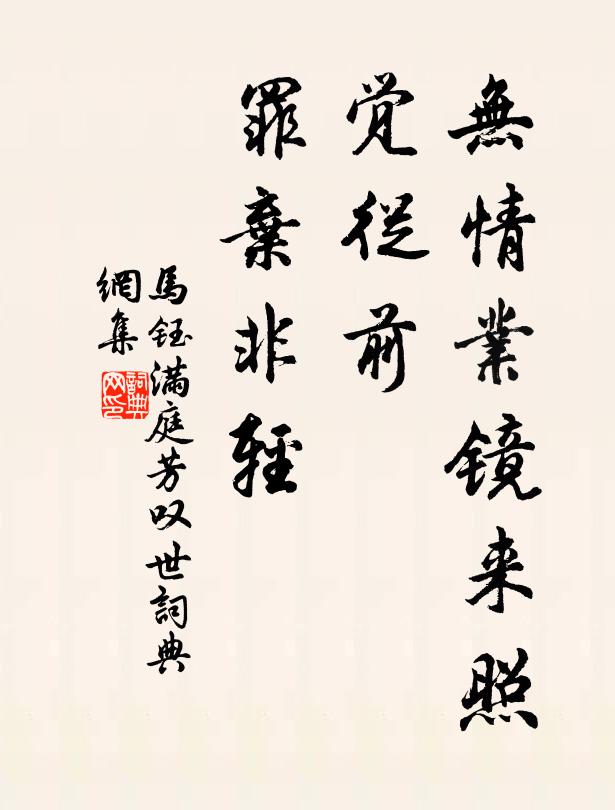 無情業镜来照
觉從前
罪棄非輕
馬鈺满庭芳叹世詞典
網集
詞典
网印